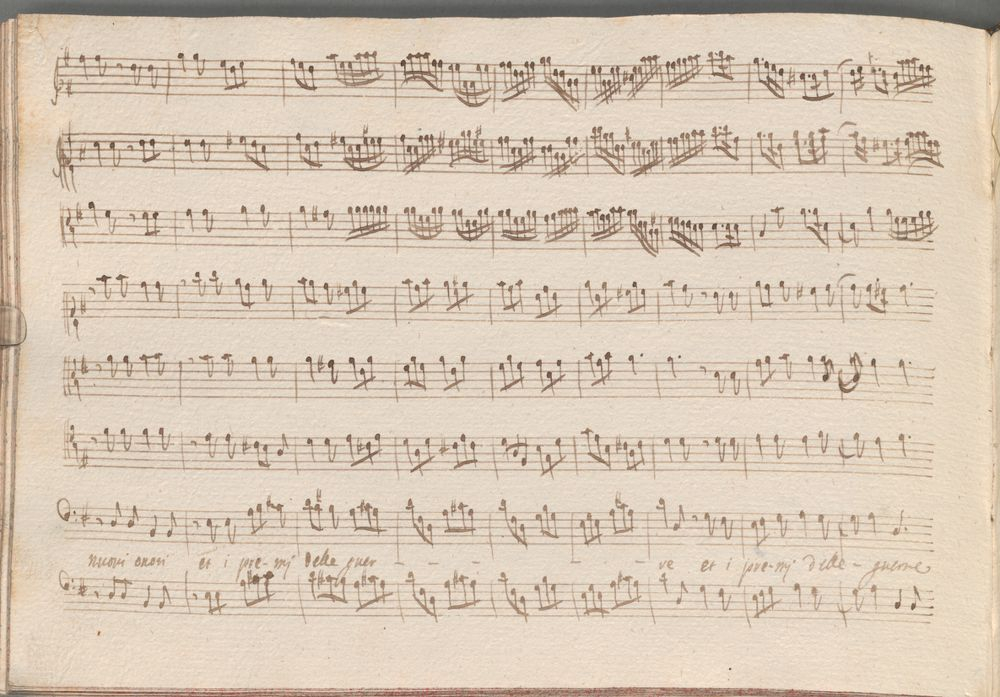 nuovi onori et i pre-mj delle guer - - - - - re et i pre-mj delle - guerre